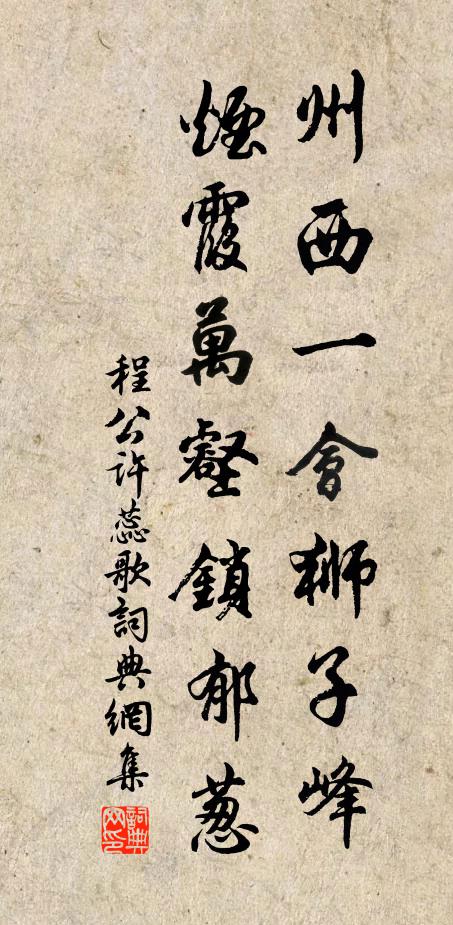 州西一會獅子峰
煙霞萬壑鎖郁蔥
程公许蕊歌詞典網集
詞典網印